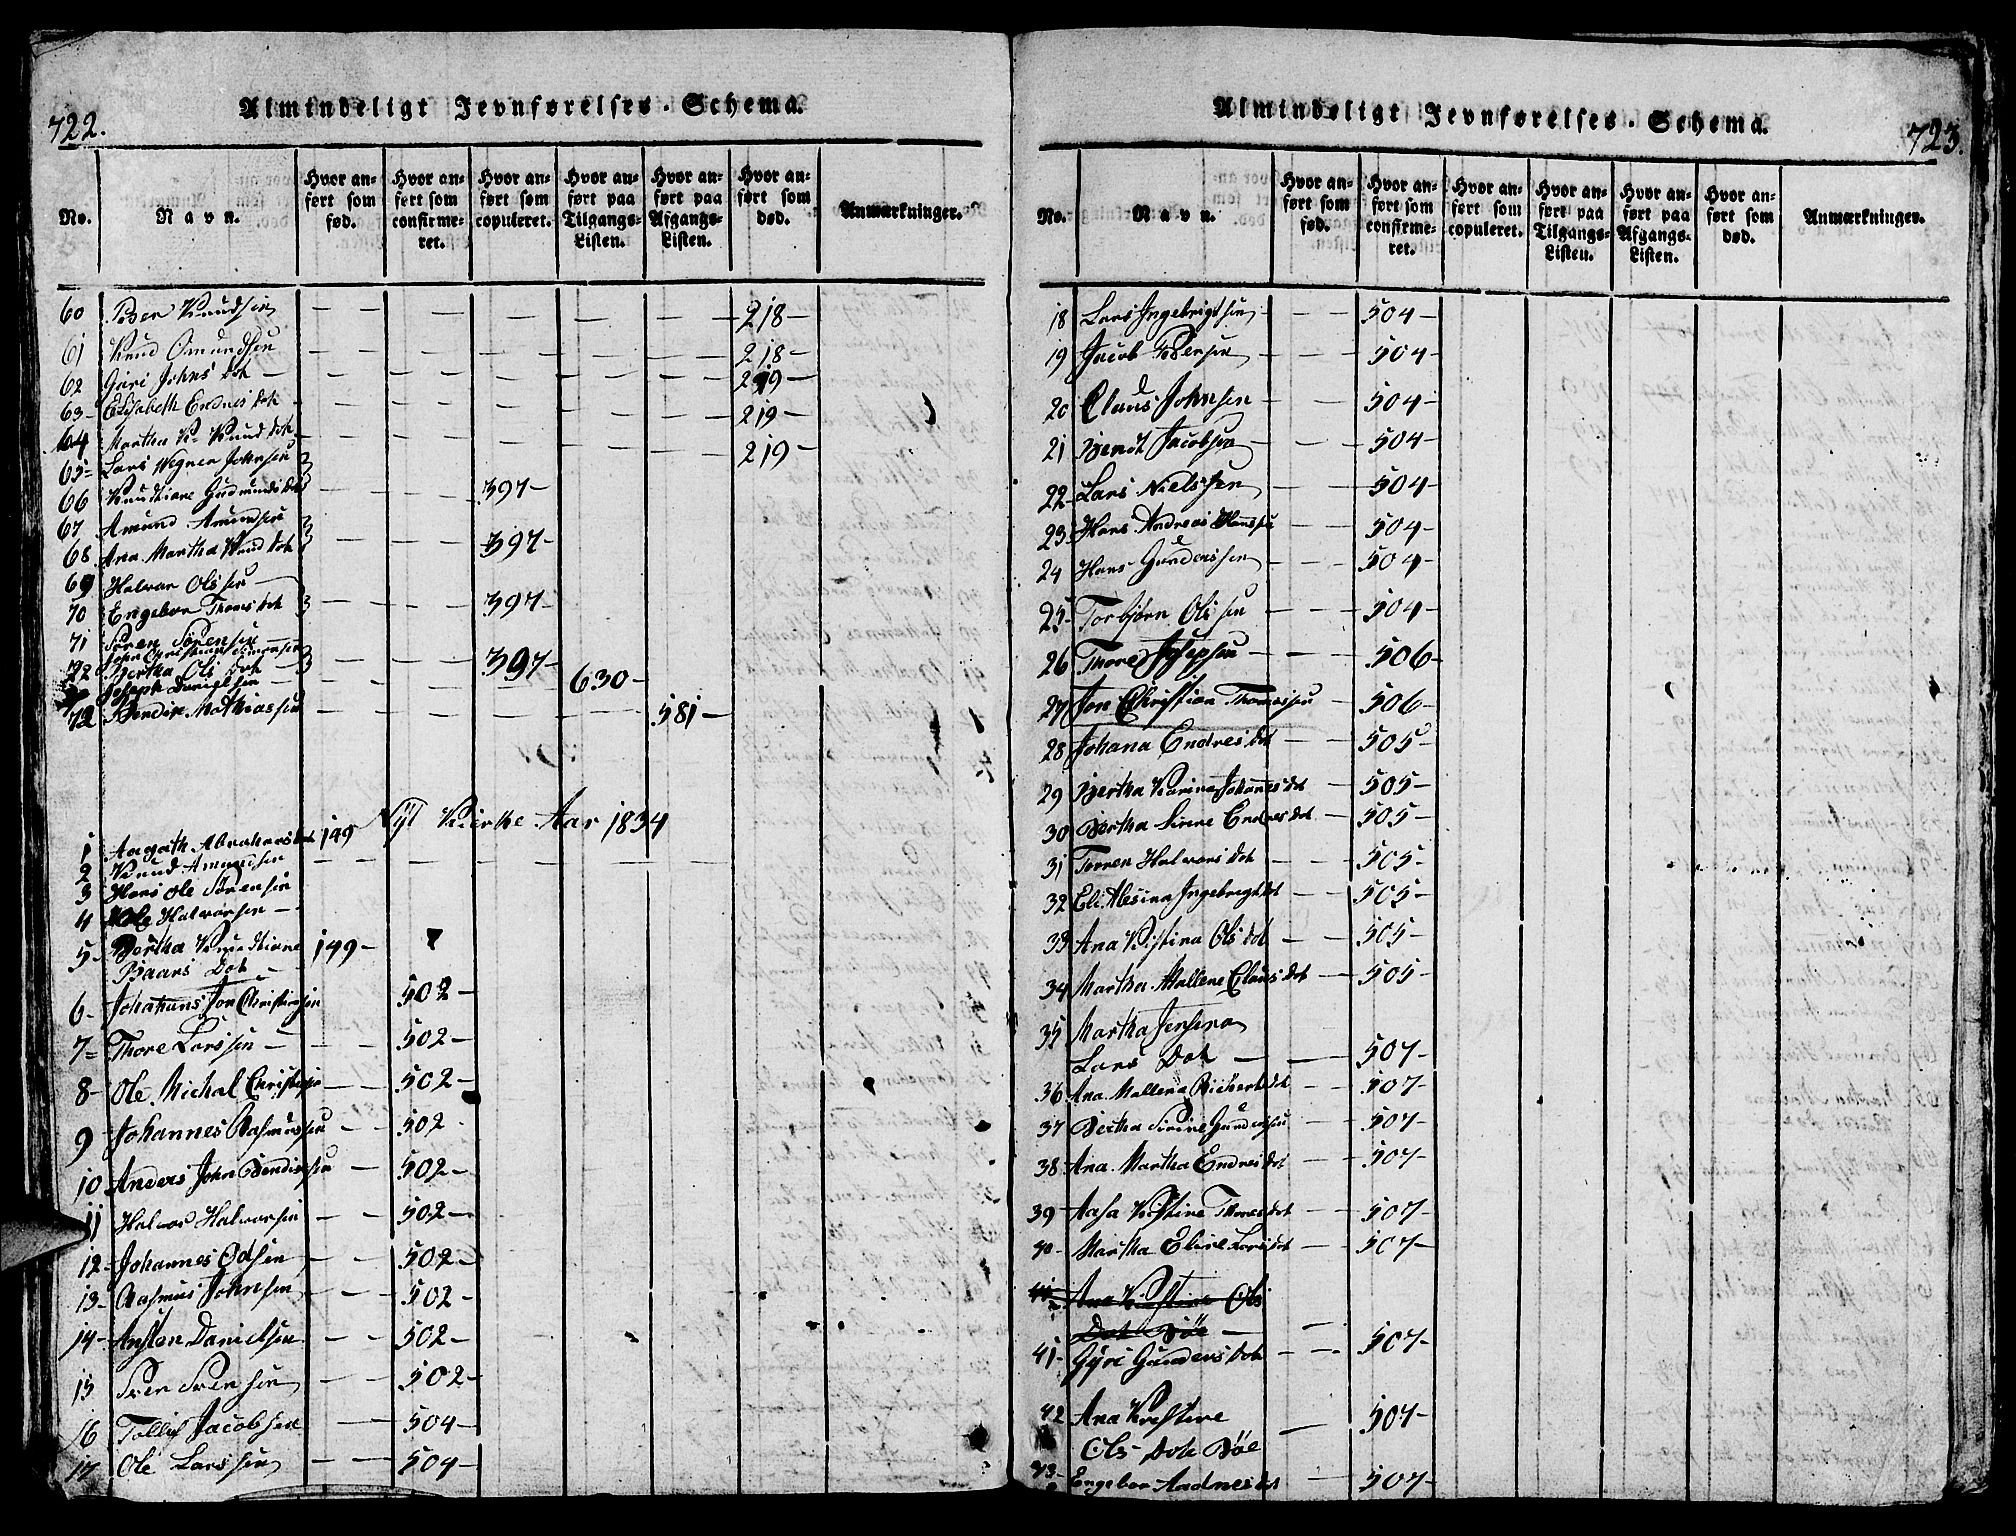 722.
Almindeligt Jevnførelses-Schema.
No.
Navn.
Hvor anført som fød.
Hvor anført som confirmeret.
Hvor anført som copuleret.
Hvor anført paa Tilgangs-Listen.
Hvor anført paa Afgangs-Listen.
Hvor anført som død.
Anmærkninger.
60 Peder Knudsen — — — — — 218 —
61 Knud Omundsen — — — — — 218 —
62 Guri Johns Dot — — — — — 219 —
63 Elisabeth Endres Dot — — — — — 219 —
64 Martha K. Knud Dot — — — — — 219 —
65 Lars Wegner Johnsen
66 Knudtiane Gudmunds Dot — — 397 —
67 Amund Amundsen
68 Ana Martha Knud Dot — — 397 —
69 Halvar Olssen —
70 Engebor Thores Dot — — 397 —
71 Søren Sørensen
John Christian Simonsen
72 Bertha Ols Dot — — — 397 —
Joseph Danielsen — — — — 630 —
72 Bendix Mathiassen — — — — — 581 —
Nyt Kierke Aar 1834
1 Aagath Abrahams Dot 149
2 Knud Amundsen — — — — —
3 Hans Ole Sørensen
4 Ole Halvorsen —
5 Bertha Knudtiane 149 —
Baars Dot —
6 Johannes Jon Christiansen 502 —
7 Thore Larssen — — — 502 —
8 Ole Michal Christensen — — 502 —
9 Johannes Rasmussen — — 502 —
10 Anders John Bendixsen — 502 —
11 Halvor Halvorsen — — 502 —
12 Johannes Odsen — — 502 —
13 Rasmus Johnsen — — 502 —
14 Austen Danielsen — — 502 —
15 Sven Svensen — — 502 —
16 Tollif Jacobsen — — 504 —
17 Ole Larssen — — 504 —
723.
Almindeligt Jevnførelses-Schema.
No.
Navn.
Hvor anført som fød.
Hvor anført som confirmeret.
Hvor anført som copuleret.
Hvor anført paa Tilgangs-Listen.
Hvor anført paa Afgangs-Listen.
Hvor anført som død.
Anmærkninger.
18 Lars Ingebrigtsen — — 504 —
19 Jacob Pedersen — — 504 —
20 Claus Johnsen — — 504 —
21 Bendt Jacobsen — — 504 —
22 Lars Nielssen — — 504 —
23 Hans Andreas Hanssen — 504 —
24 Hans Gunderssen — — 504 —
25 Torbjørn Olssen — — 504 —
26 Thore Josepsen — — 506 —
27 Jon Christian Thomassen — 506 —
28 Johana Endres Dot — — 505 —
29 Bertha Karina Johannes Dot — 505 —
30 Bertha Sirine Endres Dot — 505 —
31 Torren Halvors Dot — — 505 —
32 Eli Alesina Ingebregt Dot — 505 —
33 Ana Kistina Ols Dot — — 505 —
34 Martha Mallene Claus Dot — 505 —
35 Martha Jensena
Lars Dot — — 507 —
36 Ana Mallena Rickert Dot — 507 —
37 Bertha Sirine Gundersen — 507 —
38 Ana Martha Endres Dot — 507 —
39 Aasa Kistine Thores Dot — 507 —
40 Martha Eline Lars Dot — 507 —
41 Ana Kistine Ols
Dot Bøe — —
41 Gyri Gunders Dot — — 507 —
42 Ana Kristine — 507 —
Ols Dot Bøe
43 Engebor Aadnes Dot — 507 —